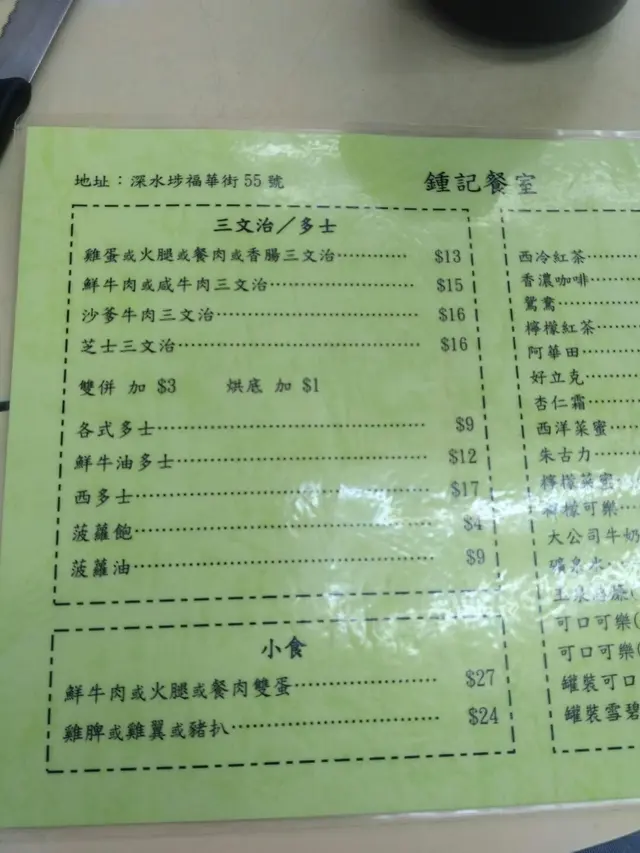 地址：深水埗福華街 55 號
鍾記餐室
三文治／多士
雞蛋或火腿或餐肉或香腸三文治 $13
鮮牛肉或咸牛肉三文治 $15
沙爹牛肉三文治 $16
芝士三文治 $16
雙併 加 $3 烘底 加 $1
各式多士 $9
鮮牛油多士 $12
西多士 $17
菠蘿飽 $4
菠蘿油 $9
小食
鮮牛肉或火腿或餐肉雙蛋 $27
雞脾或雞翼或豬扒 $24
西冷紅茶
香濃咖啡
鴛鴦
檸檬紅茶
阿華田
好立克
杏仁霜
西洋菜蜜
朱古力
檸檬菜蜜
檸檬可樂
大公司牛奶
礦泉水
可口可樂(
可口可樂(
罐裝可口
罐裝雪碧